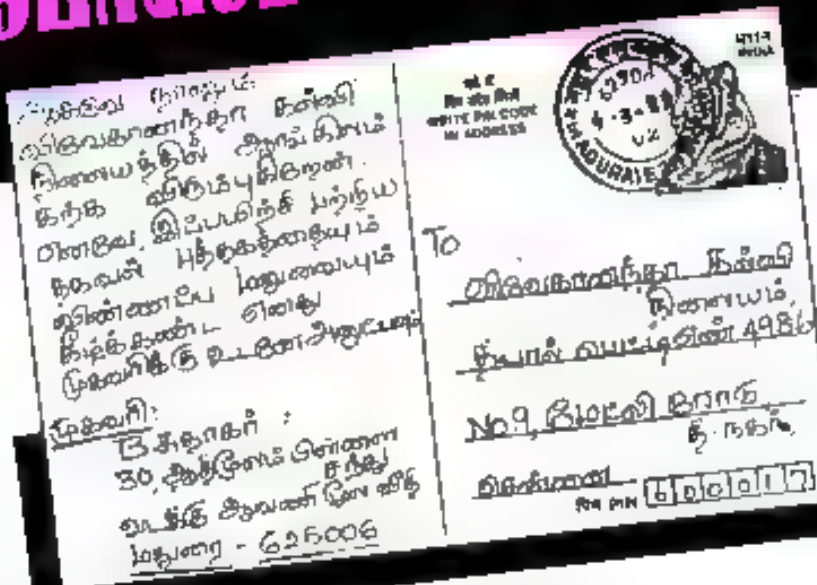 விவேகானந்தா கல்வி
நிலையத்தில் ஆங்கிலம்
கற்க விரும்புகிறேன்.
எனவே, இப்பயிற்சி பற்றிய
தகவல் புத்தகத்தையும்
விண்ணப்ப மனுவையும்
கீழ்க்கண்ட எனது
முகவரிக்கு உடனே அனுப்பவும்
முகவரி:
B சுதாகர் :
30, பிள்ளை
சந்து
வடக்கு ஆவணி மூல வீதி
மதுரை - 625006
WRITE PIN CODE
IN ADDRESS
MADURAI
To
விவேகானந்தா கல்வி
நிலையம்,
தபால் பெட்டி எண் 4986
No 9, மேட்லி ரோடு
தி. நகர்,
சென்னை
PIN 600017